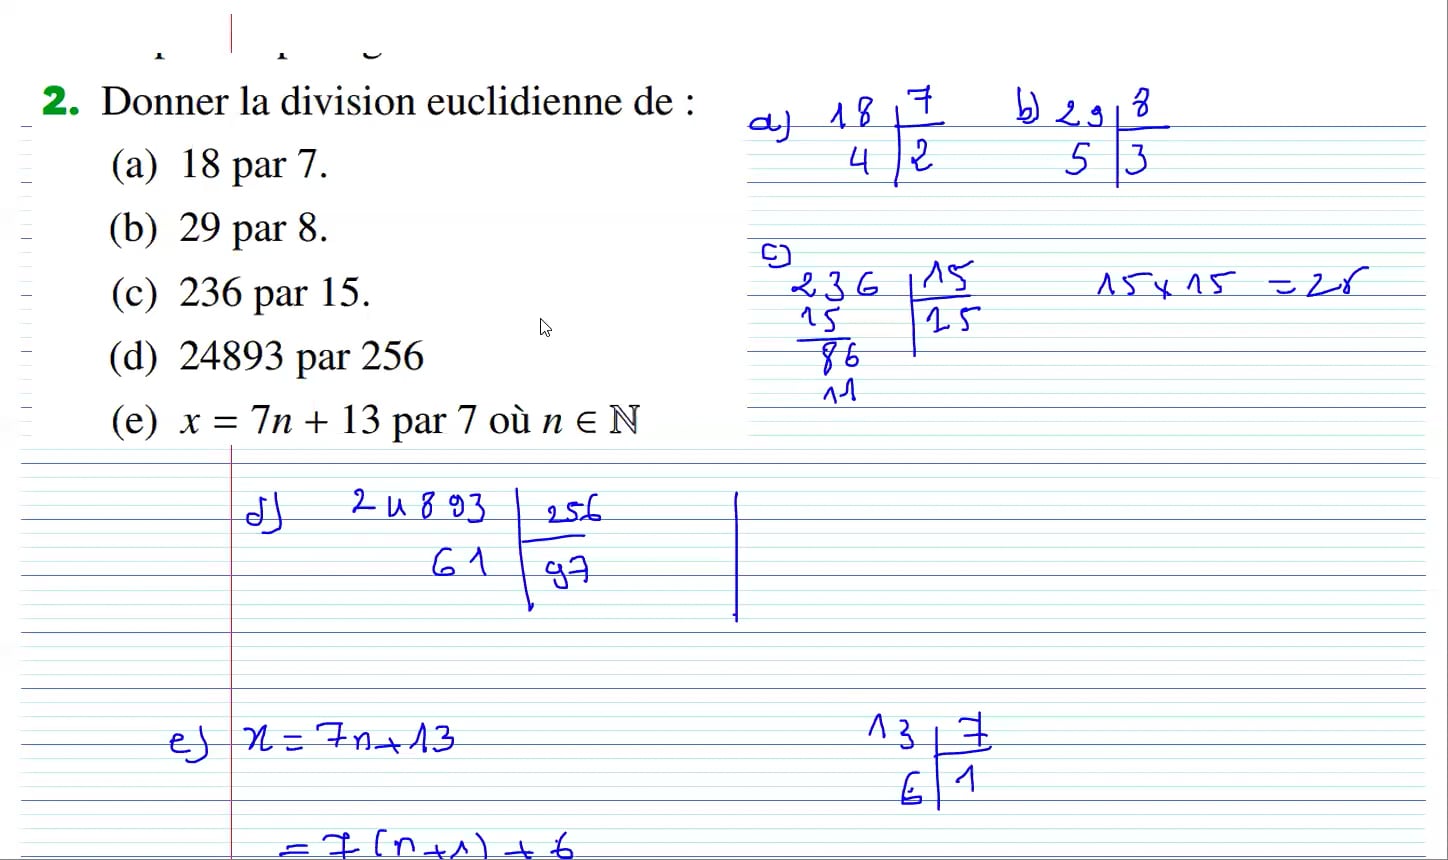 2. Donner la division euclidienne de :
(a) 18 par 7.
(b) 29 par 8.
(c) 236 par 15.
(d) 24893 par 256
(e) x = 7n + 13 par 7 où n ∈ ℕ
a) 18 7
4 2
b) 29 8
5 3
c)
236 15
15 15
86
11
15 × 15 = 2
d) 24893 256
61 97
e) x = 7n + 13
13 7
6 1
= 7(n+1) + 6